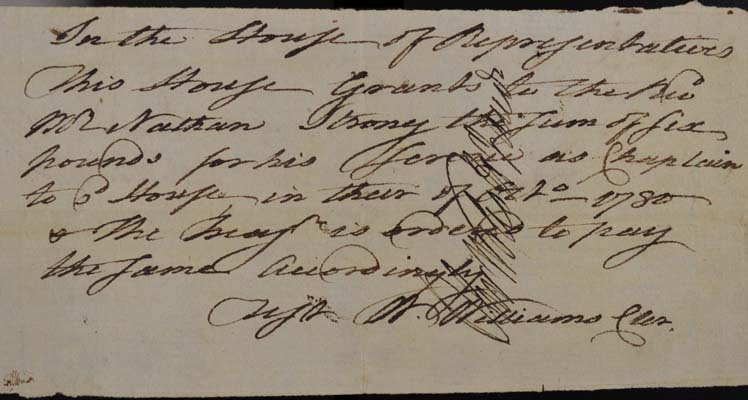 In the House of Representatives
This House Grants to the Revd
Mr Nathan Strong the Sum of Six
pounds for his Service as Chaplain
to sd House in their of Octo 1780
& the Treasr is ordered to pay
the Same Accordingly
Test W. Williams Cler.